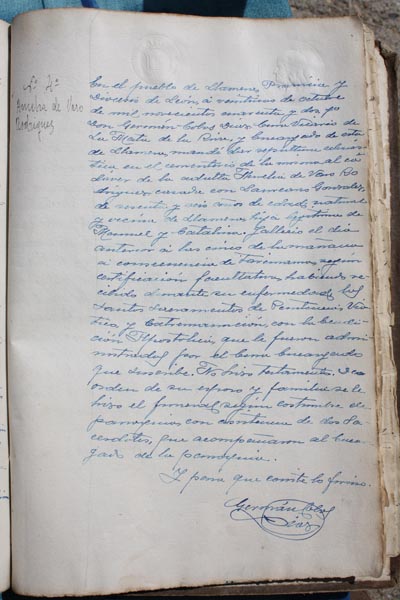 Nº 7º
Amelia de Vero
Rodríguez
En el pueblo de Llamera, Provincia y
Diócesis de León, a veintiuno de octubre
de mil novecientos cuarenta y dos, yo
Don Germán Cobos Díez Cura Párroco de
La Mata de la Riva, y encargado de esta
de Llamera, mandé dar sepultura eclesiás
tica en el cementerio de la misma al ca
dáver de la adulta Amelia de Vero Ro
dríguez casada con Laureano González,
de sesenta y seis años de edad, natural
y vecina de Llamera, hija legítima de
Manuel y Catalina. Falleció el día
anterior a las cinco de la mañana
a consecuencia de según
certificación facultativa, habiendo re
cibido durante su enfermedad los
Santos Sacramentos de Penitencia, Viá
tico, y Extremaunción, con la bendi
ción Apostólica, que le fueron admi
nistrados por el Cura encargado
que suscribe. No hizo testamento. De
orden de su esposo y familia se le
hizo el funeral según costumbre de
parroquia con asistencia de dos Sa
cerdotes, que acompañaron al encar
gado de la parroquia.
Y para que conste lo firmo.
Germán Cobos
Díez